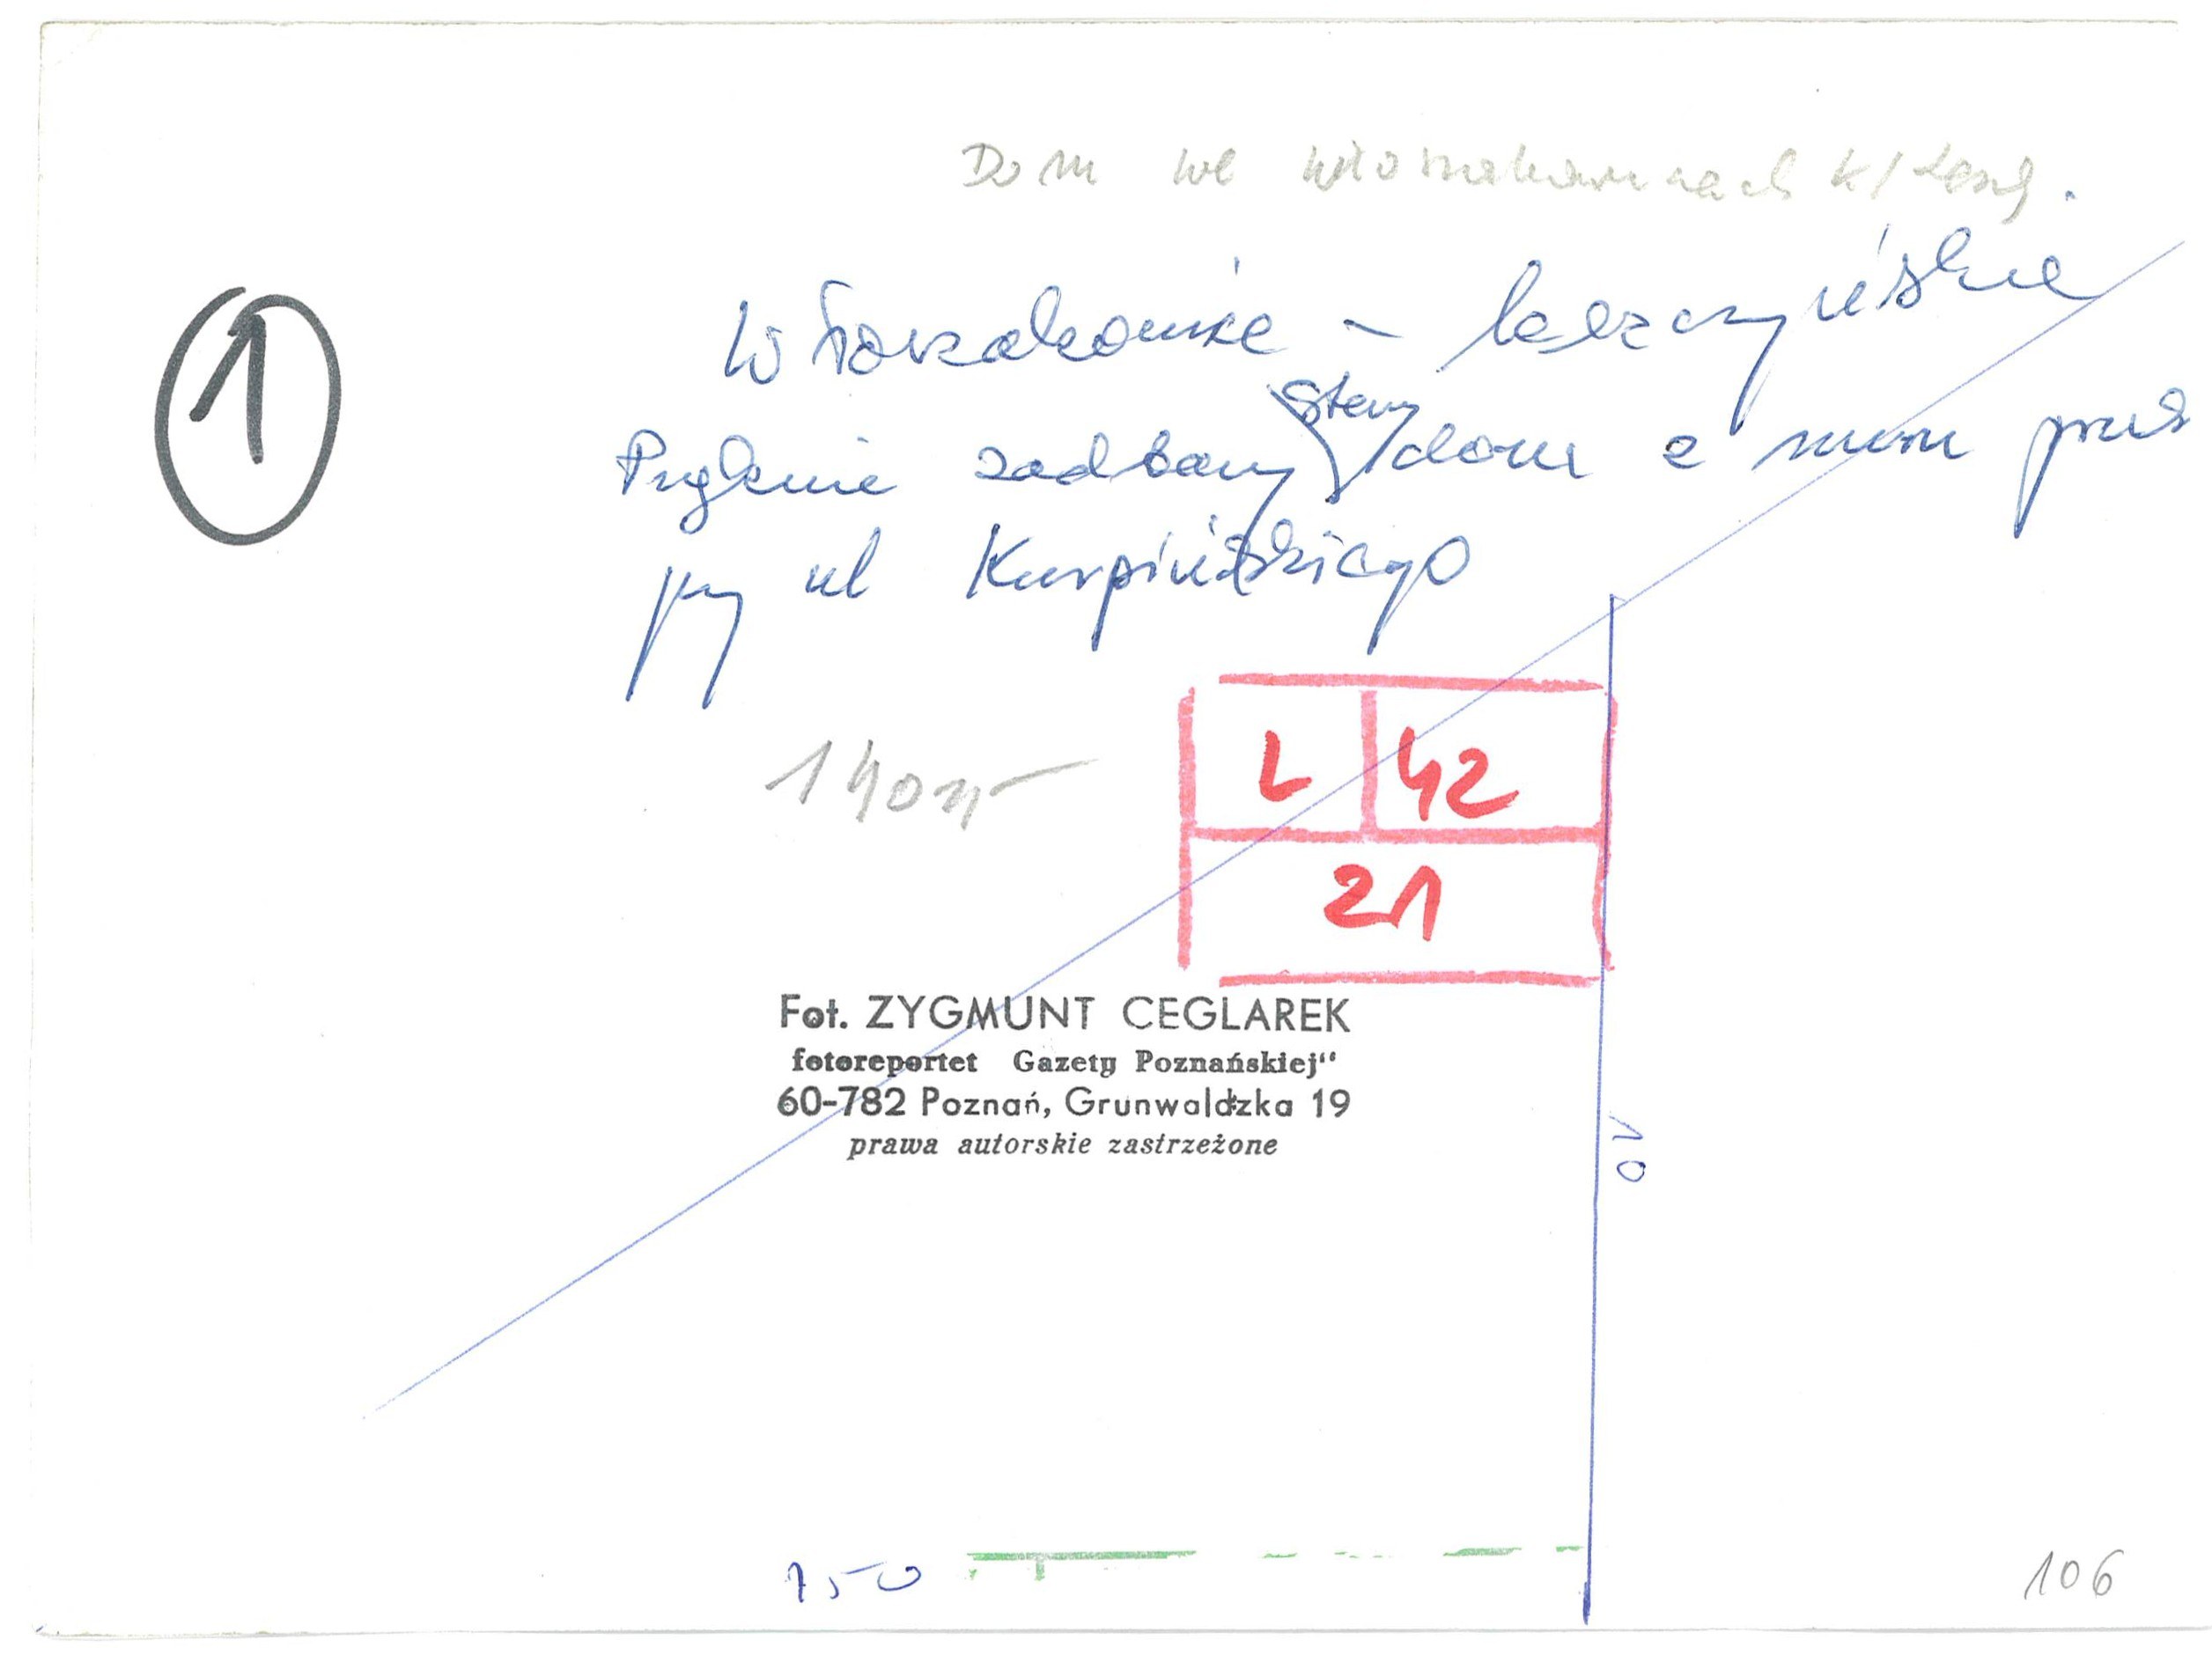 Dom we Włoszakowicach k/Leszn.
Włoszakowice - leszczyńskie
Pięknie zadbany stary dom z muru prus
przy ul Kurpińskiego
1
140
L 42
21
Fot. ZYGMUNT CEGLAREK
fotoreportet Gazety Poznańskiej"
60-782 Poznań, Grunwaldzka 19
prawa autorskie zastrzeżone
10
150
106